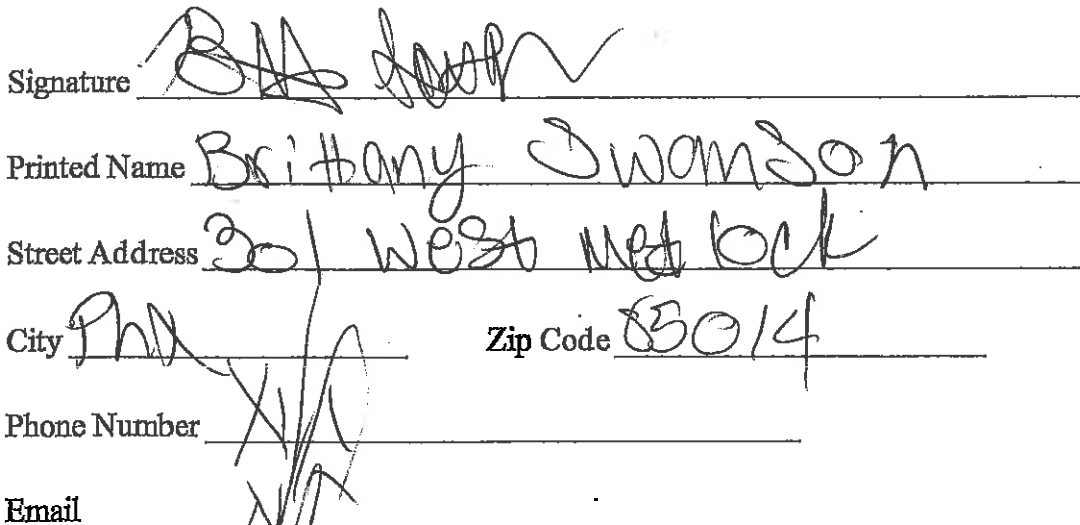 Signature
Printed Name Brittany Swanson
Street Address 301 West Medlock
City Phx Zip Code 85014
Phone Number N/A
Email N/A